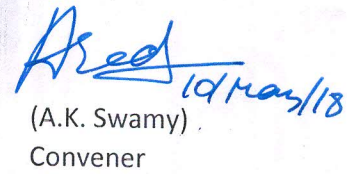 10/May/18
(A.K. Swamy)
Convener